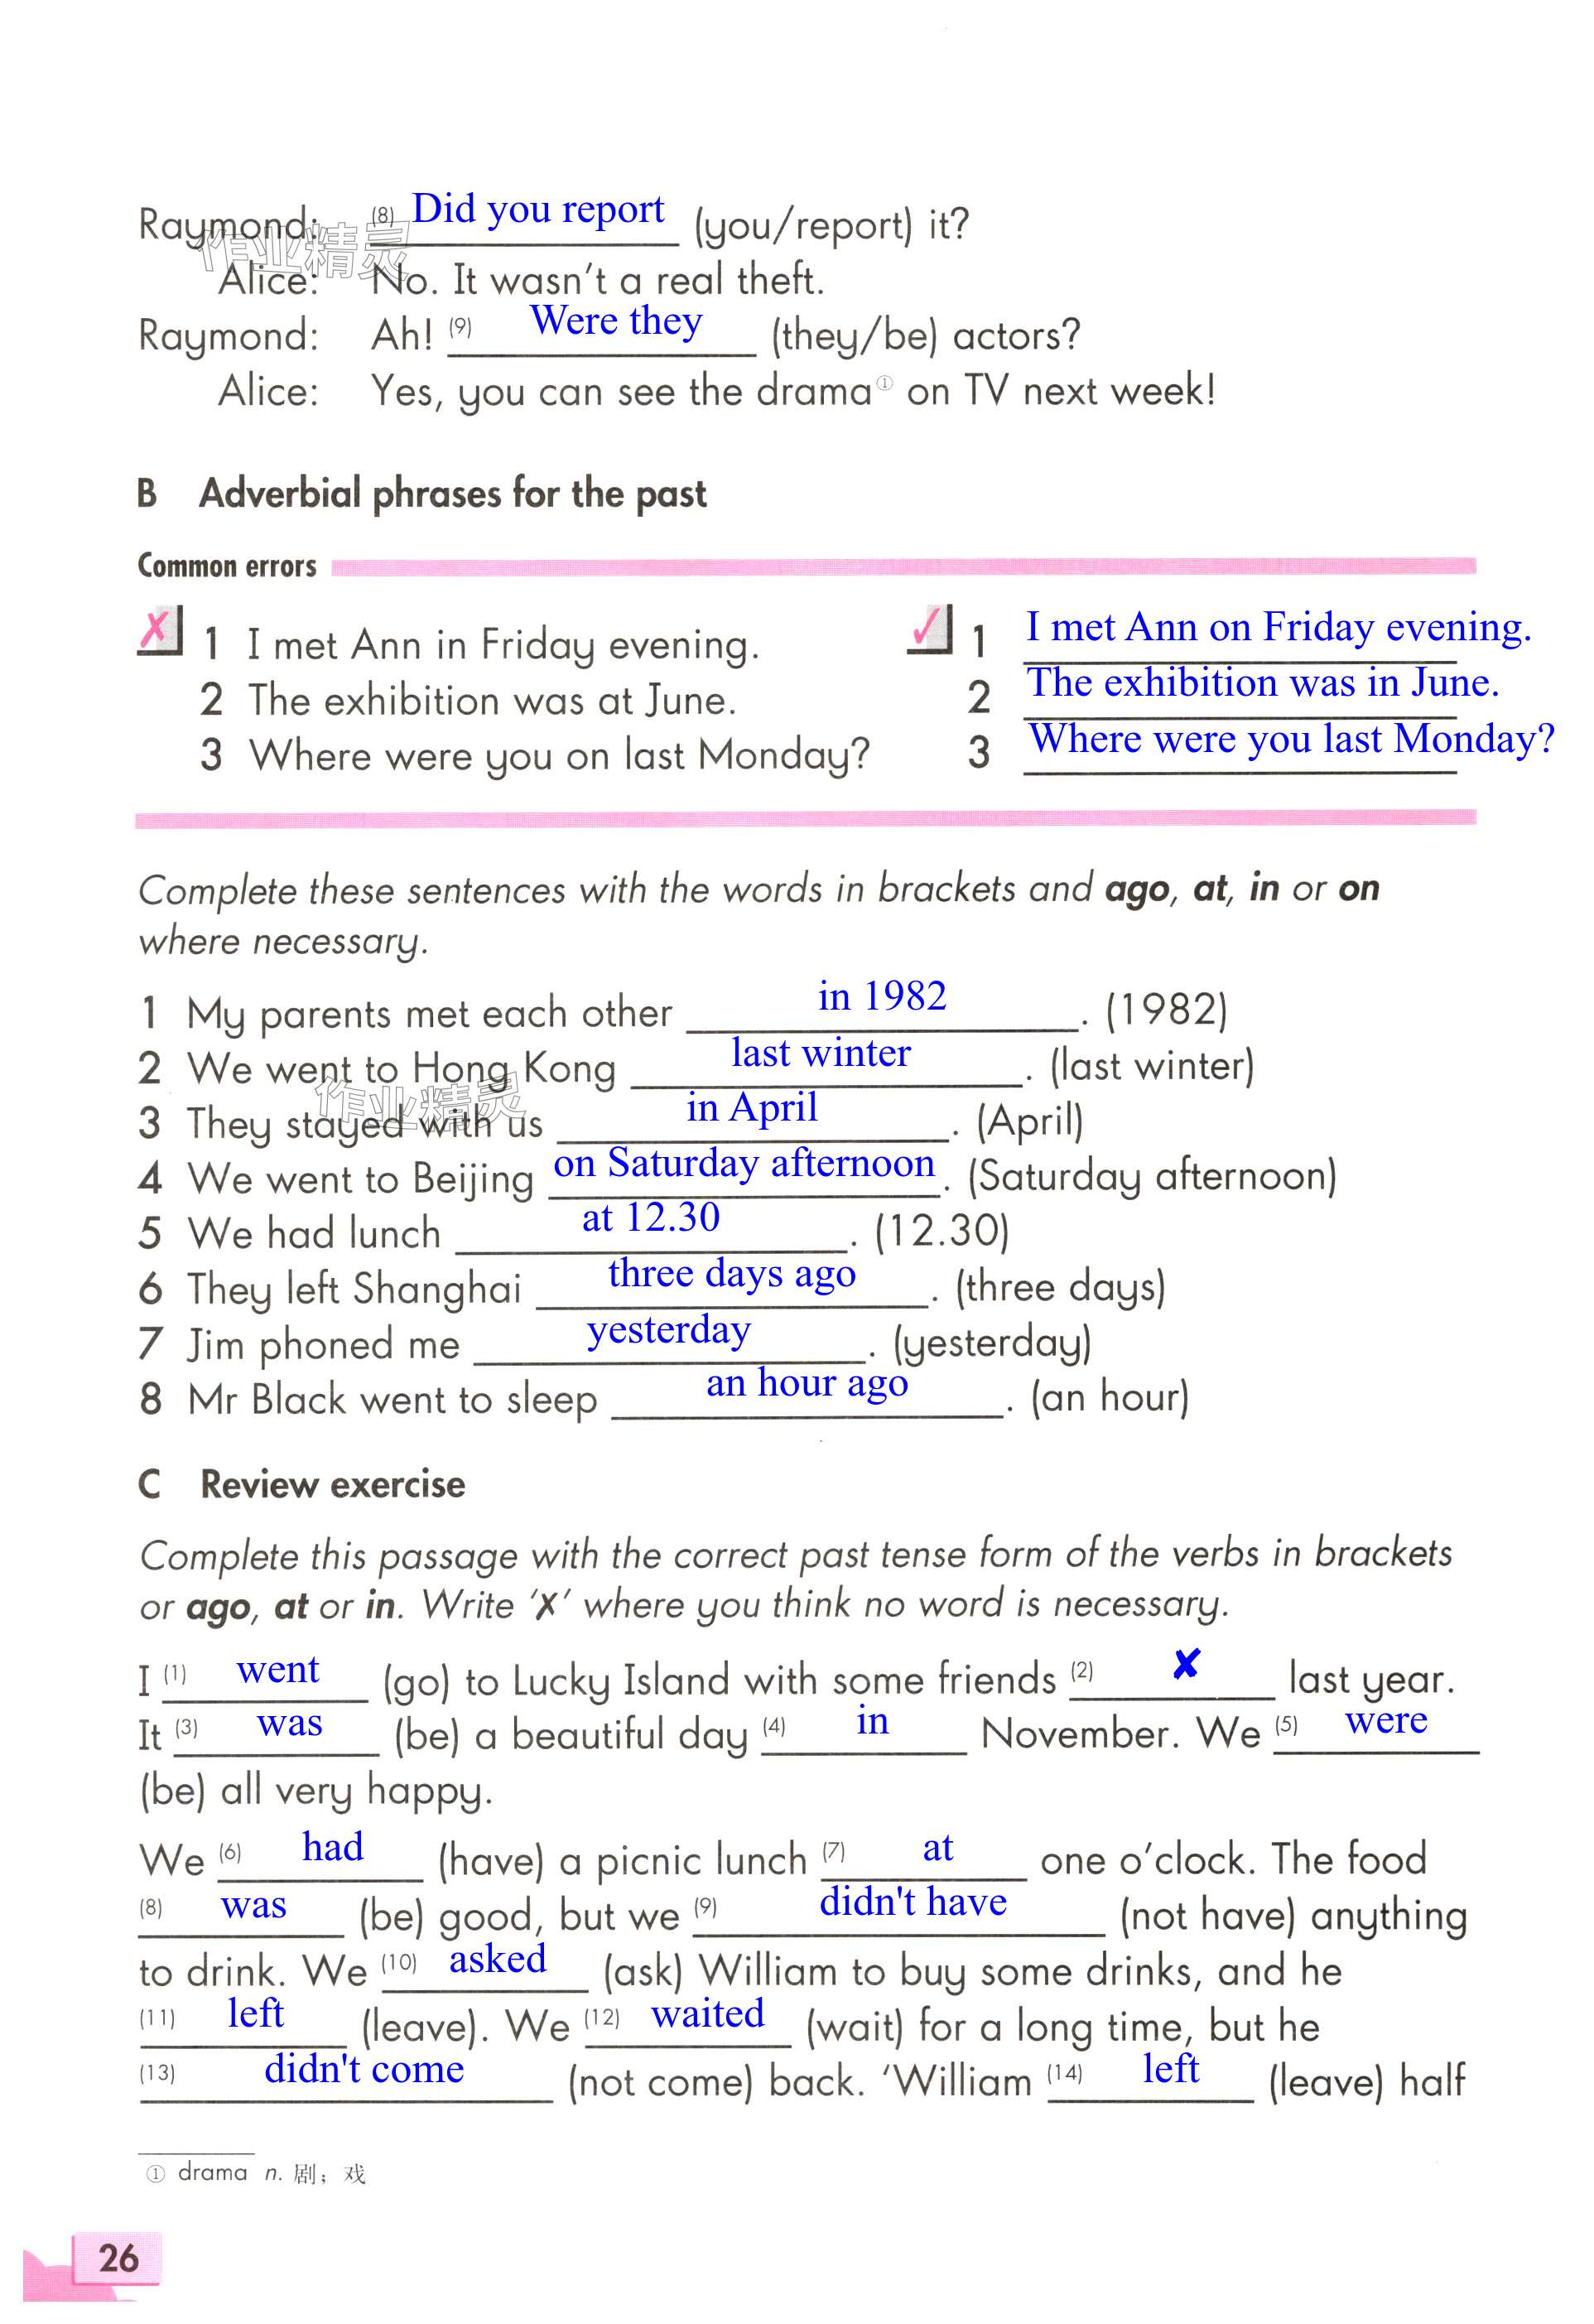 Raymond: (8) Did you report (you/report) it?
作业精灵
Alice: No. It wasn't a real theft.
Raymond: Ah! (9) Were they (they/be) actors?
Alice: Yes, you can see the drama① on TV next week!
B Adverbial phrases for the past
Common errors
✗ 1 I met Ann in Friday evening. ✓ 1 I met Ann on Friday evening.
2 The exhibition was at June. 2 The exhibition was in June.
3 Where were you on last Monday? 3 Where were you last Monday?
Complete these sentences with the words in brackets and ago, at, in or on
where necessary.
1 My parents met each other in 1982. (1982)
2 We went to Hong Kong last winter. (last winter)
作业精灵
3 They stayed with us in April. (April)
4 We went to Beijing on Saturday afternoon. (Saturday afternoon)
5 We had lunch at 12.30. (12.30)
6 They left Shanghai three days ago. (three days)
7 Jim phoned me yesterday. (yesterday)
8 Mr Black went to sleep an hour ago. (an hour)
C Review exercise
Complete this passage with the correct past tense form of the verbs in brackets
or ago, at or in. Write ‘✗’ where you think no word is necessary.
I (1) went (go) to Lucky Island with some friends (2) ✘ last year.
It (3) was (be) a beautiful day (4) in November. We (5) were
(be) all very happy.
We (6) had (have) a picnic lunch (7) at one o’clock. The food
(8) was (be) good, but we (9) didn't have (not have) anything
to drink. We (10) asked (ask) William to buy some drinks, and he
(11) left (leave). We (12) waited (wait) for a long time, but he
(13) didn't come (not come) back. ‘William (14) left (leave) half
① drama n. 剧；戏
26